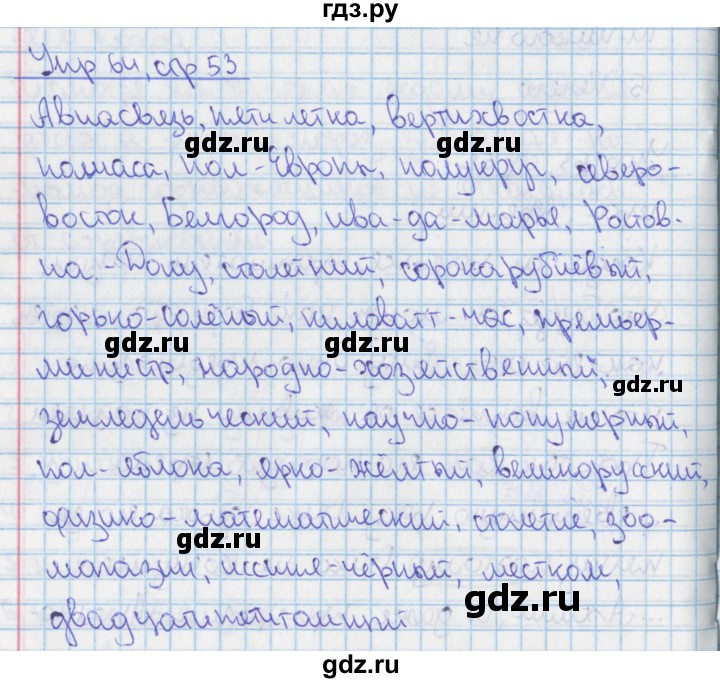 гдз.ру
Упр 64, стр 53
Авиасвязь, пятилетка, вертихвостка,
gdz.ru gdz.ru
полчаса, пол-Европы, полукруг, северо-
восток, Белгород, ива-да-марья, Ростов-
gdz.ru gdz.ru
на-Дону, столетний, сорокарублёвый,
горько-солёный, киловатт-час, премьер-
gdz.ru gdz.ru
министр, народно-хозяйственный,
gdz.ru
земледельческий, научно-популярный,
пол-яблока, ярко-жёлтый, великорусский,
gdz.ru gdz.ru
физико-математический, столетие, зоо-
магазин, иссиня-чёрный, местком,
gdz.ru
двадцатипятитомный
gdz.ru